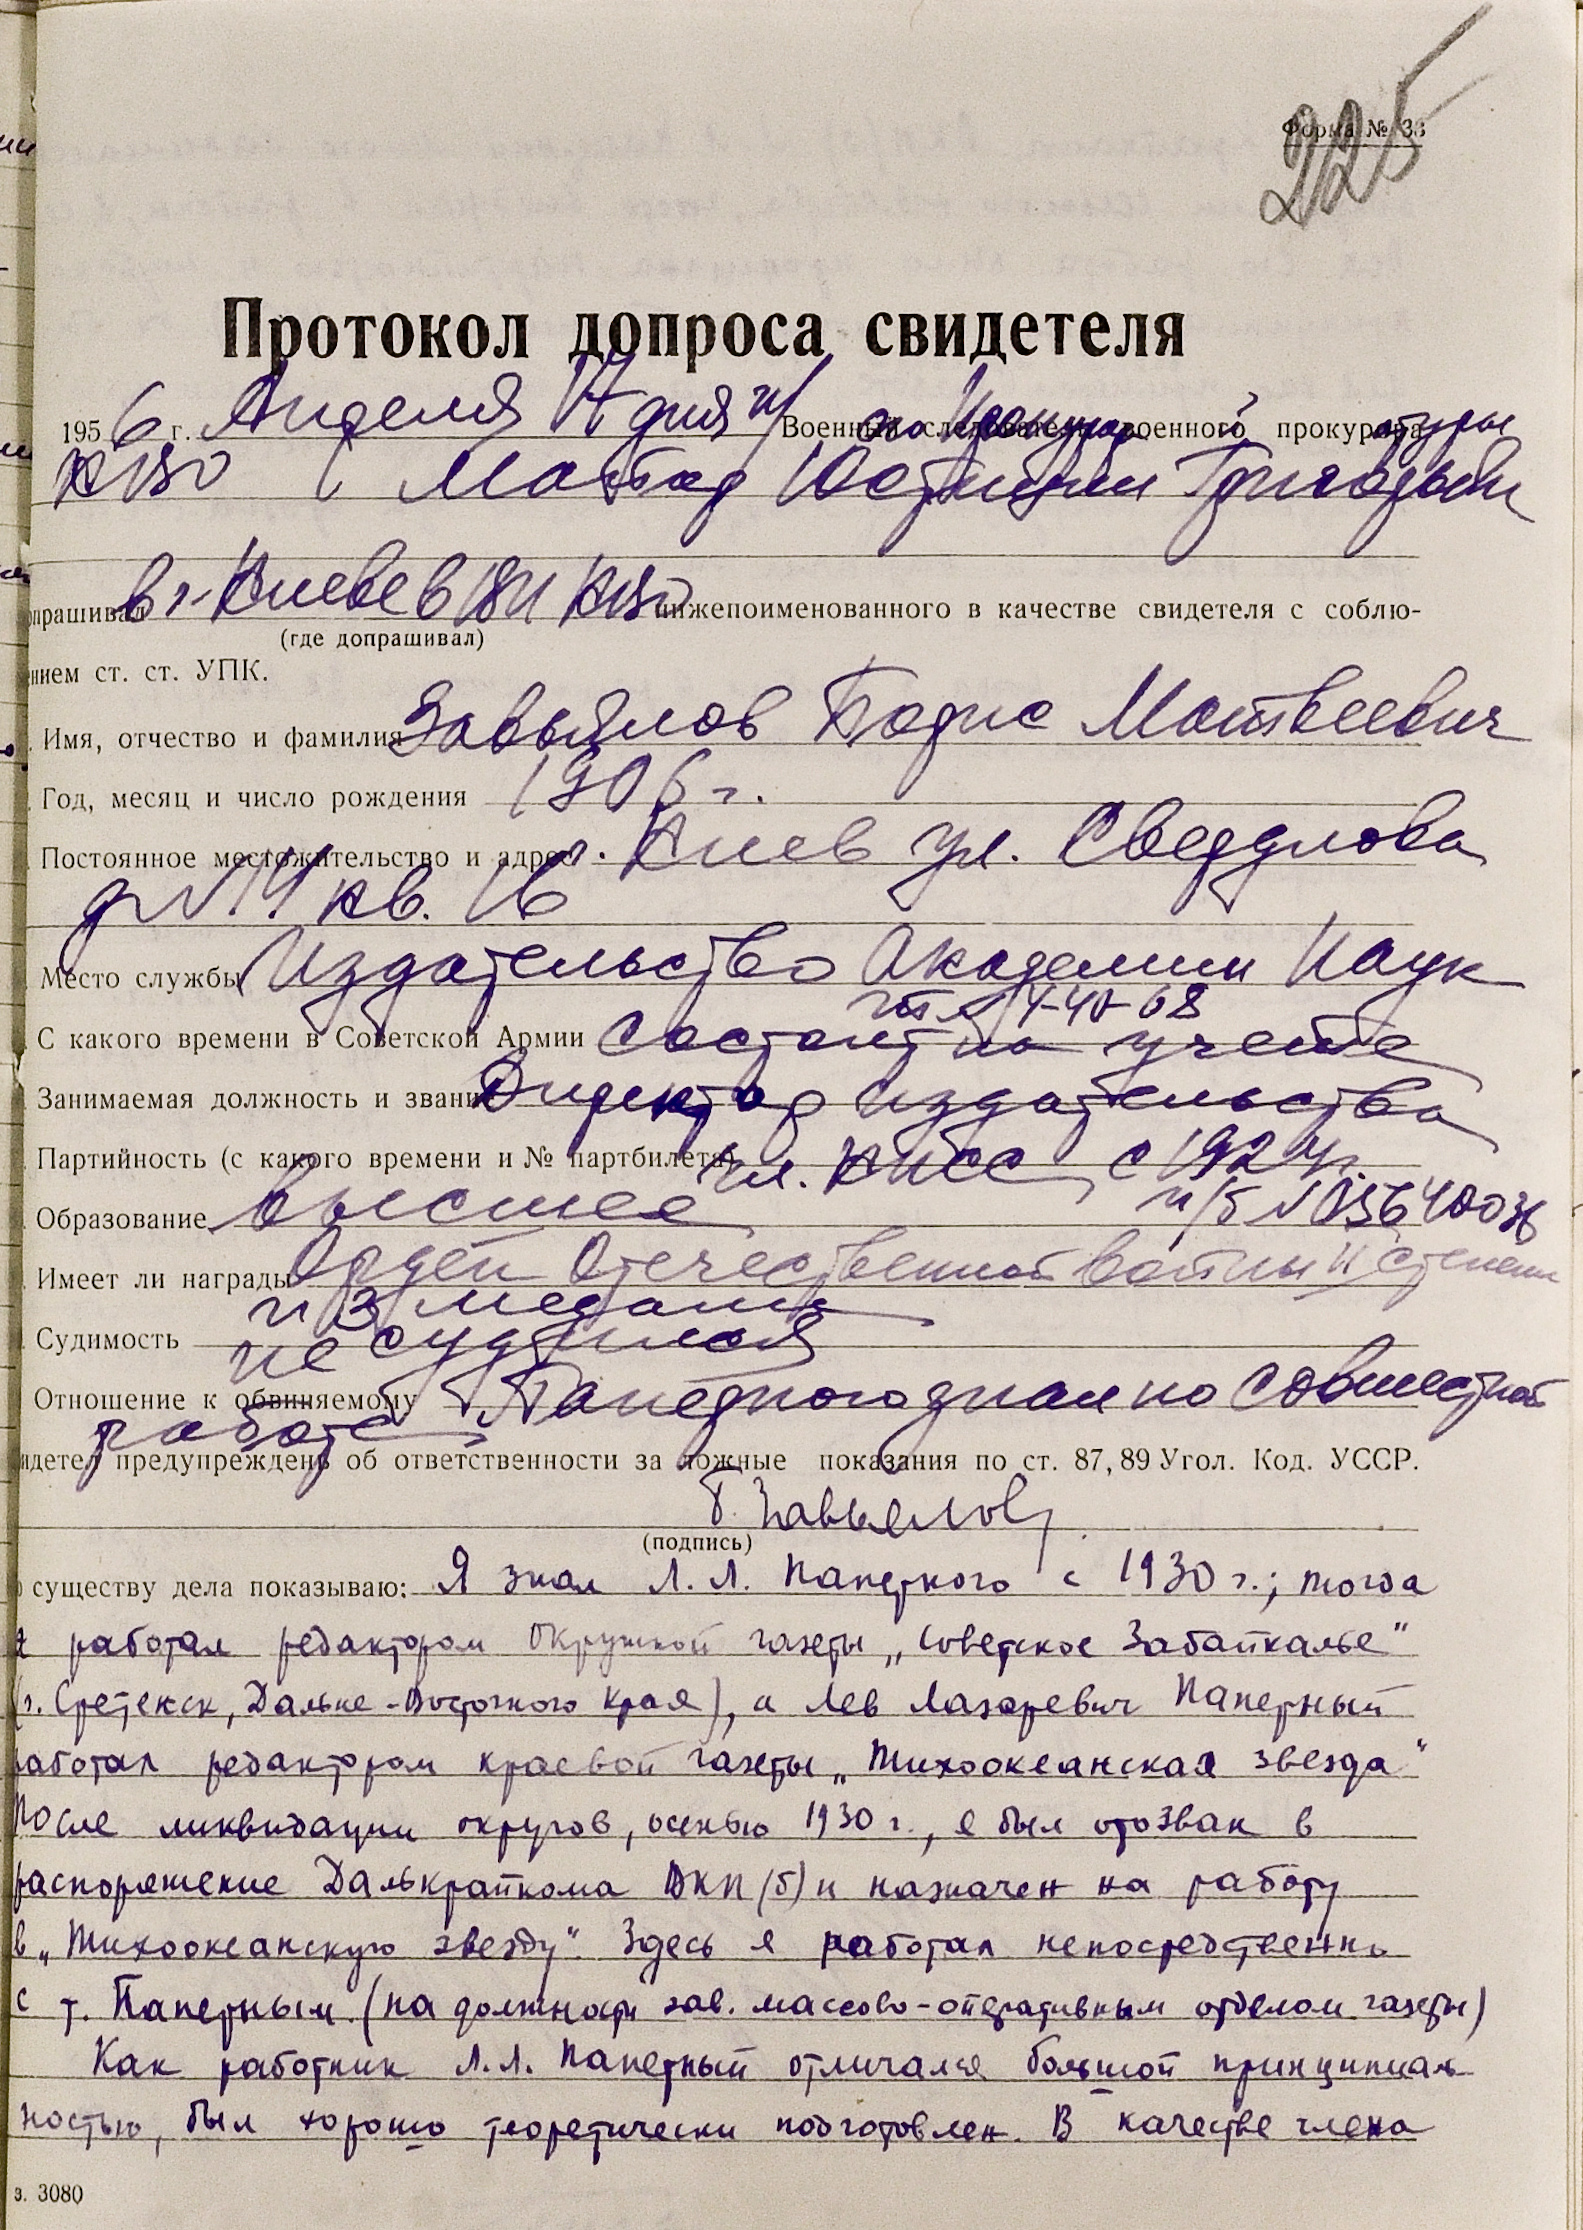 Форма № 33
225
Протокол допроса свидетеля
1956 г. Апреля 17 дня Военный следователь военного прокурора
КВО Майор Юстиции Григорьян
допрашивал в г. Киеве в КВО нижепоименованного в качестве свидетеля с соблю-
(где допрашивал)
ением ст. ст. УПК.
Имя, отчество и фамилия Завьялов Борис Матвеевич
Год, месяц и число рождения 1906 г.
Постоянное местожительство и адрес г. Киев ул. Свердлова
д № 14 кв. 16
Место службы Издательство Академии Наук
тел 4-40-68
С какого времени в Советской Армии Состоит на учете
Занимаемая должность и звание Директор издательства
Партийность (с какого времени и № партбилета) чл. КПСС с 1924 г.
п/б №
Образование Высшее
Имеет ли награды Орден Отечественной войны II степени
и 3 медали
Судимость не судился
Отношение к обвиняемому Паперного знал по совместной
работе
идетель предупрежден об ответственности за ложные показания по ст. 87, 89 Угол. Код. УССР.
Б. Завьялов
(подпись)
о существу дела показываю: Я знал Л. Л. Паперного с 1930 г.; тогда
я работал редактором окружной газеты „Советское Забайкалье"
(г. Сретенск, Дальне-Восточного края), а Лев Лазаревич Паперный
работал редактором краевой газеты „Тихоокеанская звезда"
После ликвидации округов, осенью 1930 г., я был отозван в
распоряжение Далькрайкома ВКП(б) и назначен на работу
в „Тихоокеанскую звезду". Здесь я работал непосредственно
с т. Паперным (на должности зав. массово-оперативным отделом газеты)
Как работник Л.Л. Паперный отличался большой принципиаль-
ностью, был хорошо теоретически подготовлен. В качестве члена
з. 3080